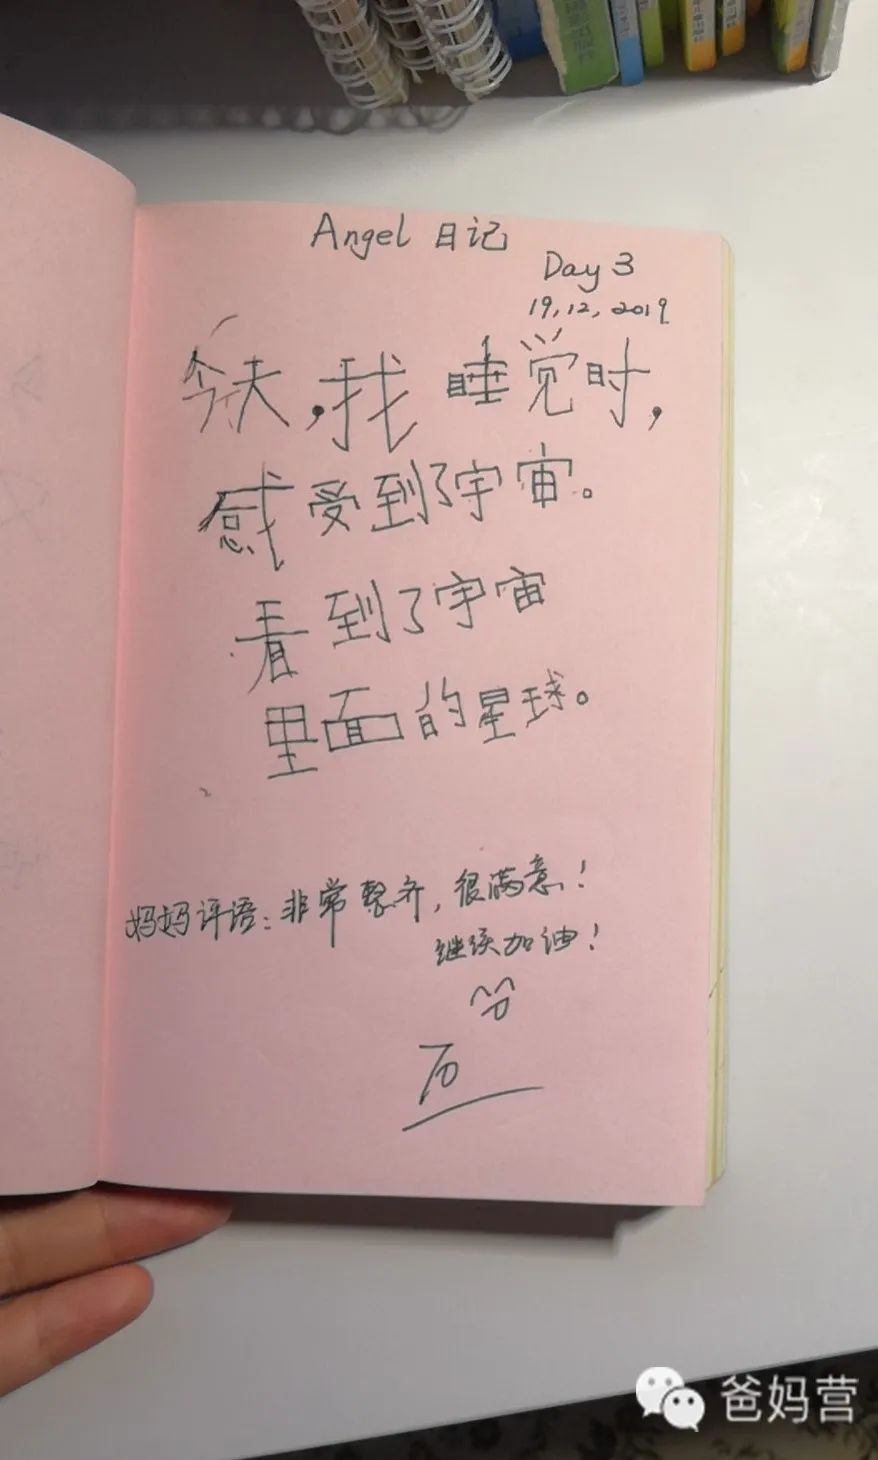 Angel 日记
Day 3
19,12,2019
今天,我睡觉时,
感受到了宇宙。
看到了宇宙
里面的星球。
妈妈评语:非常整齐,很满意!
继续加油!
爸妈营